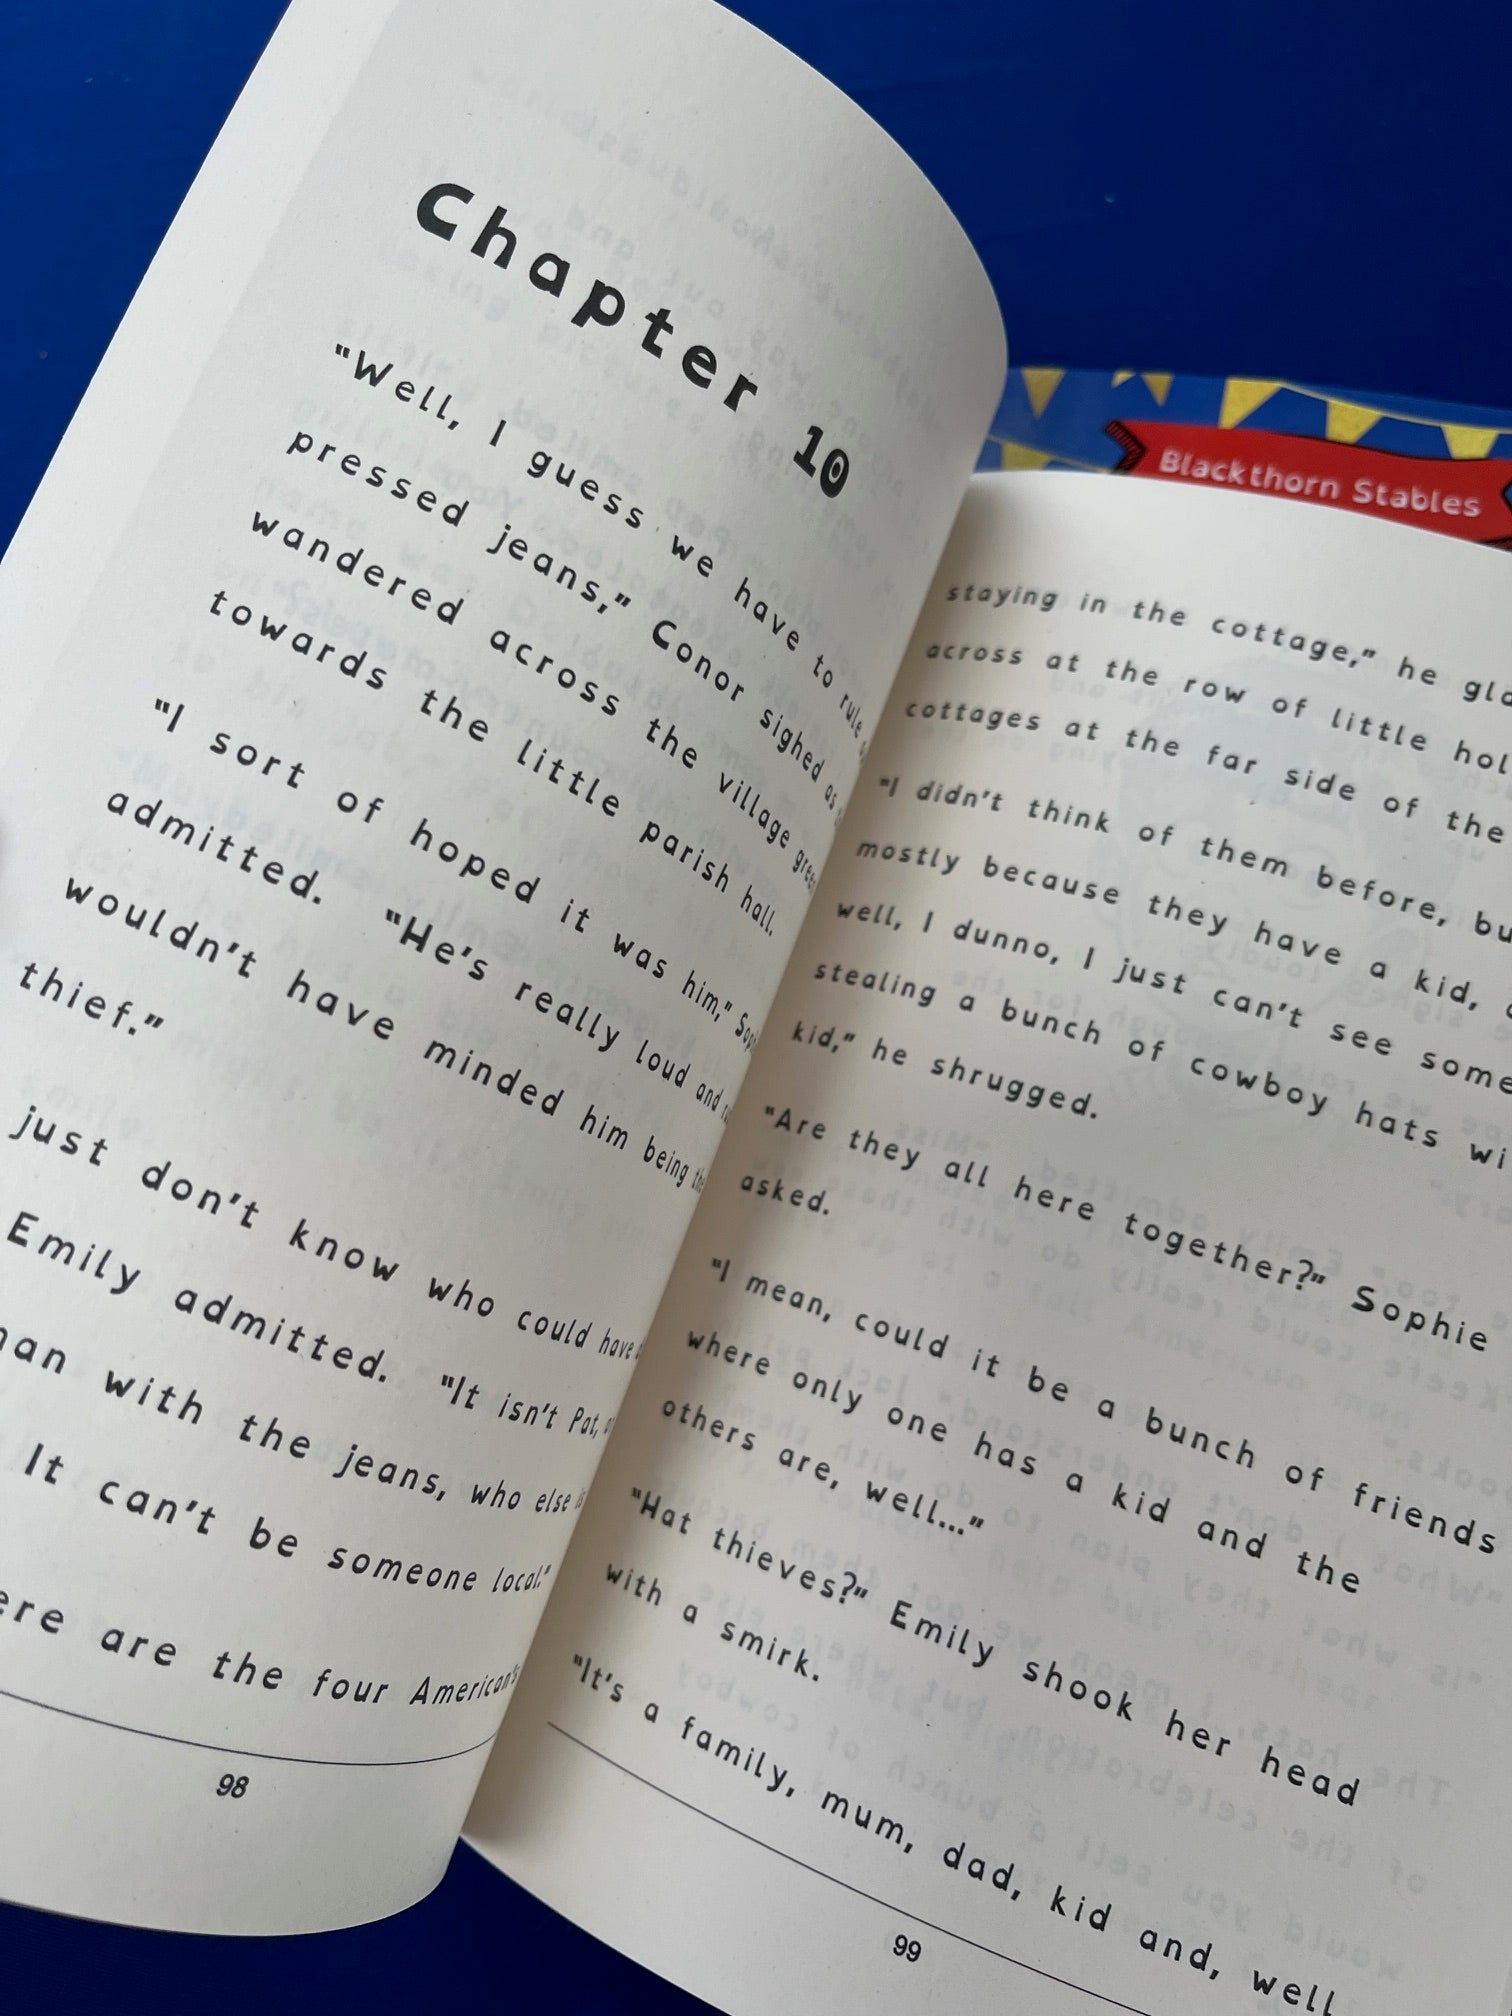 Chapter 10
"Well, I guess we have to rule
pressed jeans," Conor sighed as
wandered across the village green
towards the little parish hall.
"I sort of hoped it was him,"
admitted. "He's really loud and
wouldn't have minded him being the
thief."
just don't know who could have
Emily admitted. "It isn't Pat,
with the jeans, who else is
It can't be someone local."
are the four American's
98
Blackthorn Stables
staying in the cottage," he
across at the row of little
cottages at the far side of the
"I didn't think of them before,
mostly because they have a kid,
well, I dunno, I just can't see
stealing a bunch of cowboy hats
kid," he shrugged.
"Are they all here together?" Sophie
asked.
"I mean, could it be a bunch of friends
where only one has a kid and the
others are, well..."
"Hat thieves?" Emily shook her head
with a smirk.
"It's a family, mum, dad, kid and, well
99